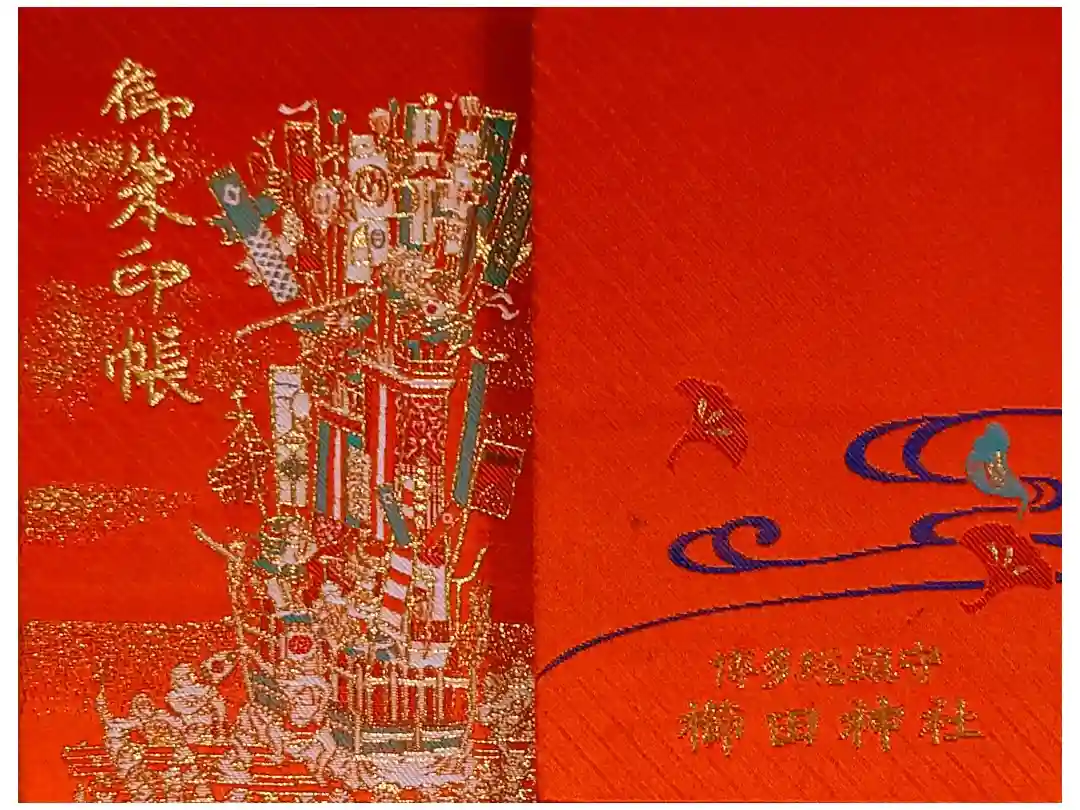 御朱印帳
博多総鎮守
櫛田神社